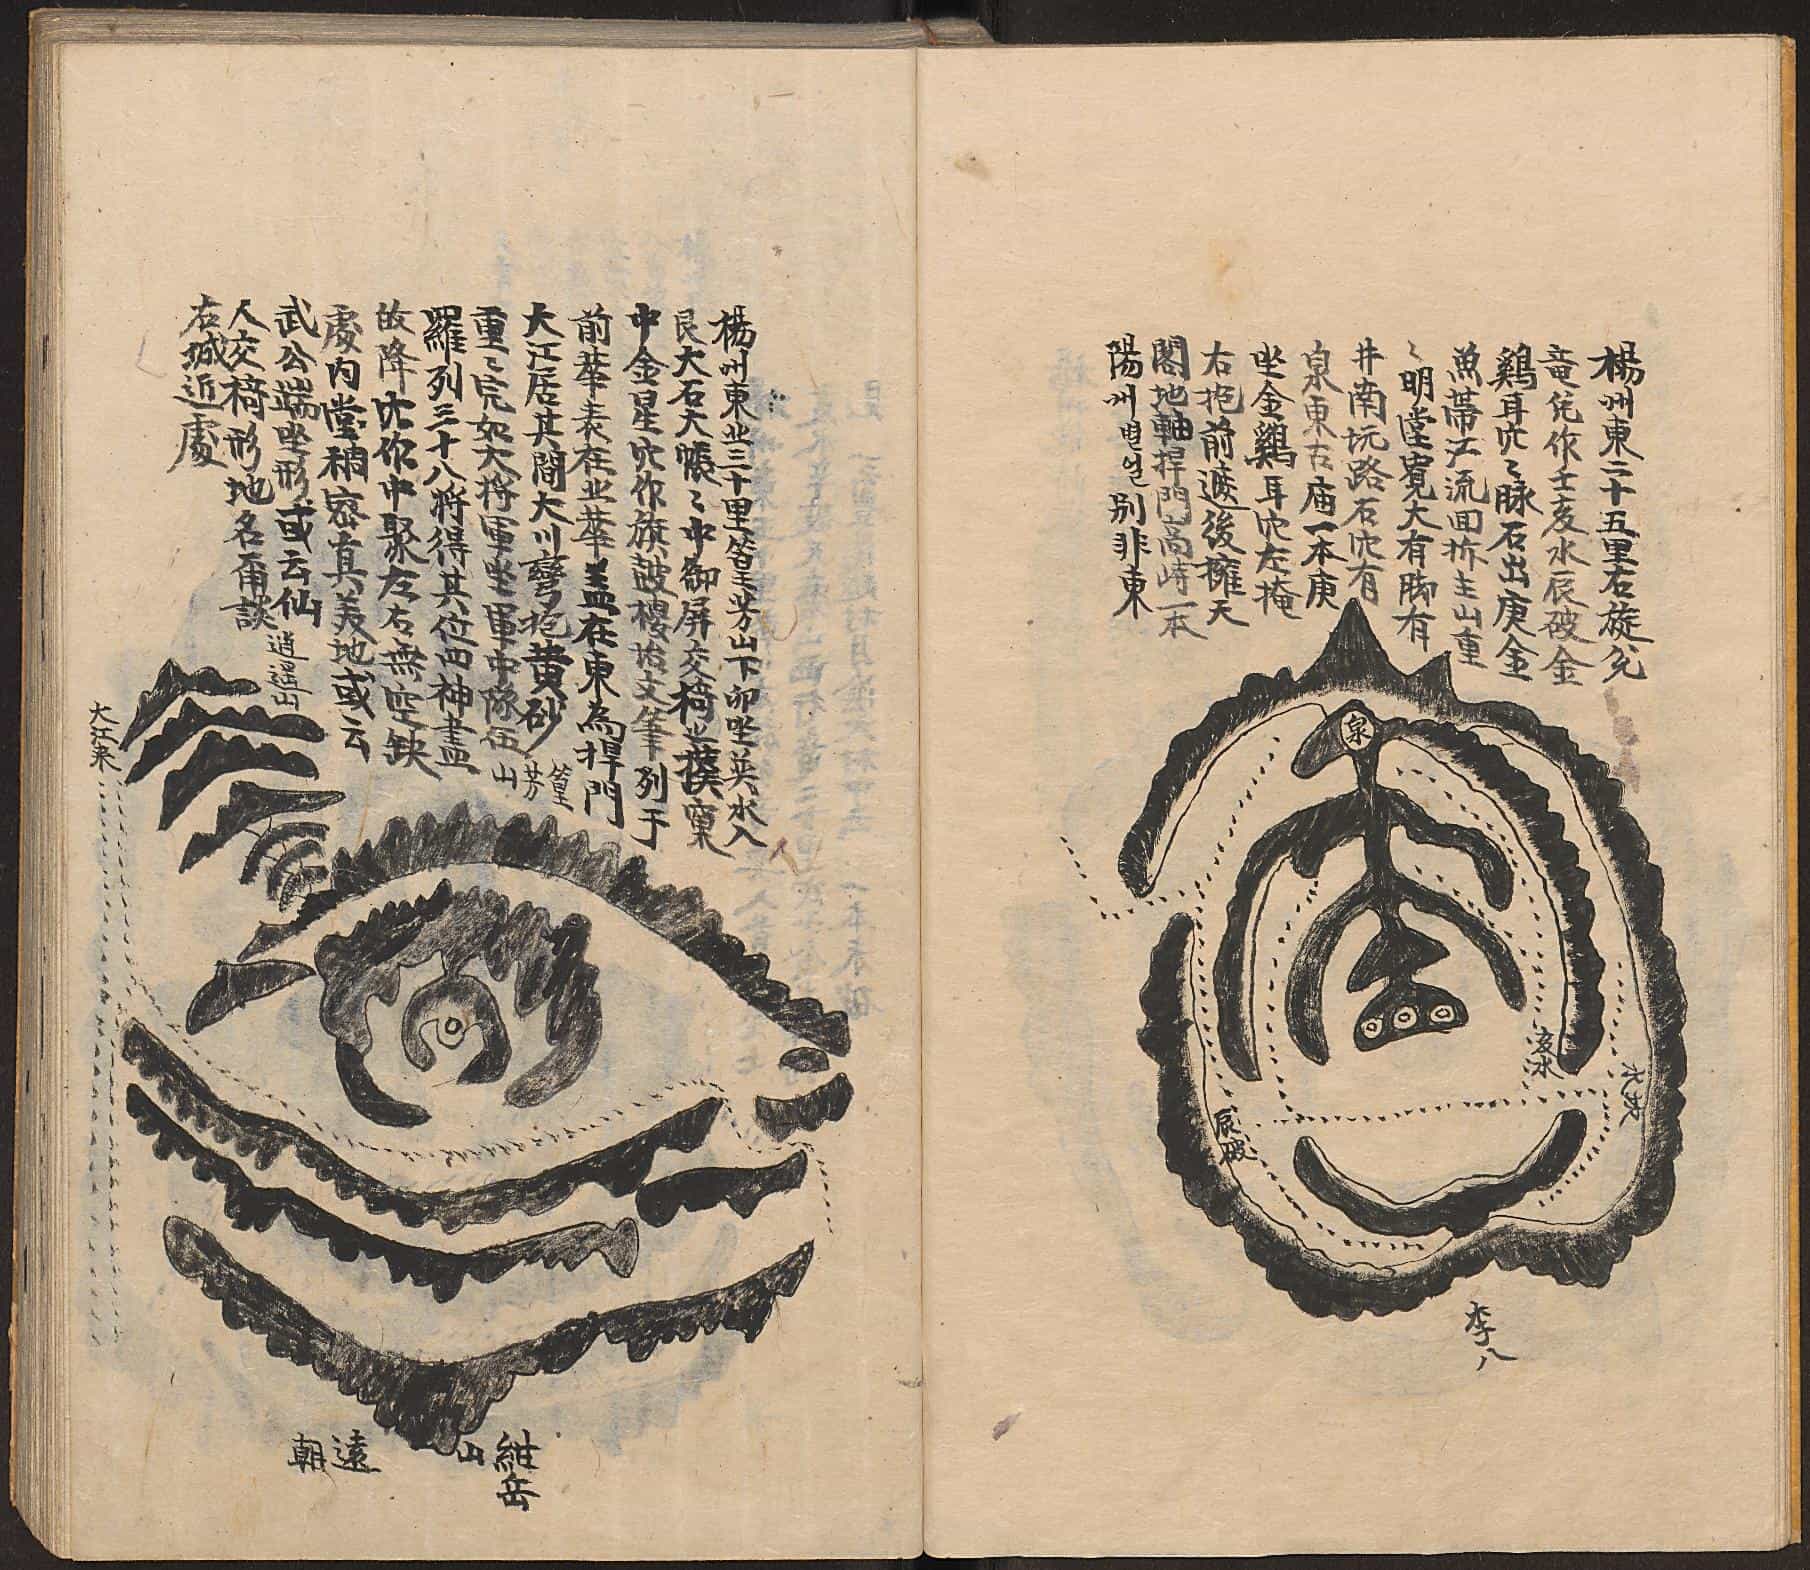 楊州東二十五里右旋兌
竜兌作壬亥水辰破金
鷄耳穴〻脉石出庚金
魚帶江流回拆主山重
〻明堂寬大有脚有
井南坑路石穴有
泉東古庙一本庚
坐金鷄耳穴左掩
右抱前遮後擁天
閣地軸捍門高峙一本
陽州 별 别非東
泉
亥水
辰破
李八
楊州東北三十里篁芳山下卯坐巽水入
艮大石大帳〻中御屏交椅也撲窠
中金星穴作旗鼓樓抬文筆列于
前華表在北華盖在東為捍門
大江居其間大川彎抱黄砂
重〻完如大将軍坐軍中隊伍
羅列三十八将得其位四神盡
故降穴作中聚左右無空缺
處内堂稠密真美地或云
武公端坐形或云仙
人交椅形地名甬談
右城近處
篁
芳
山
逍遥山
大江来
紺岳
山
遠
朝